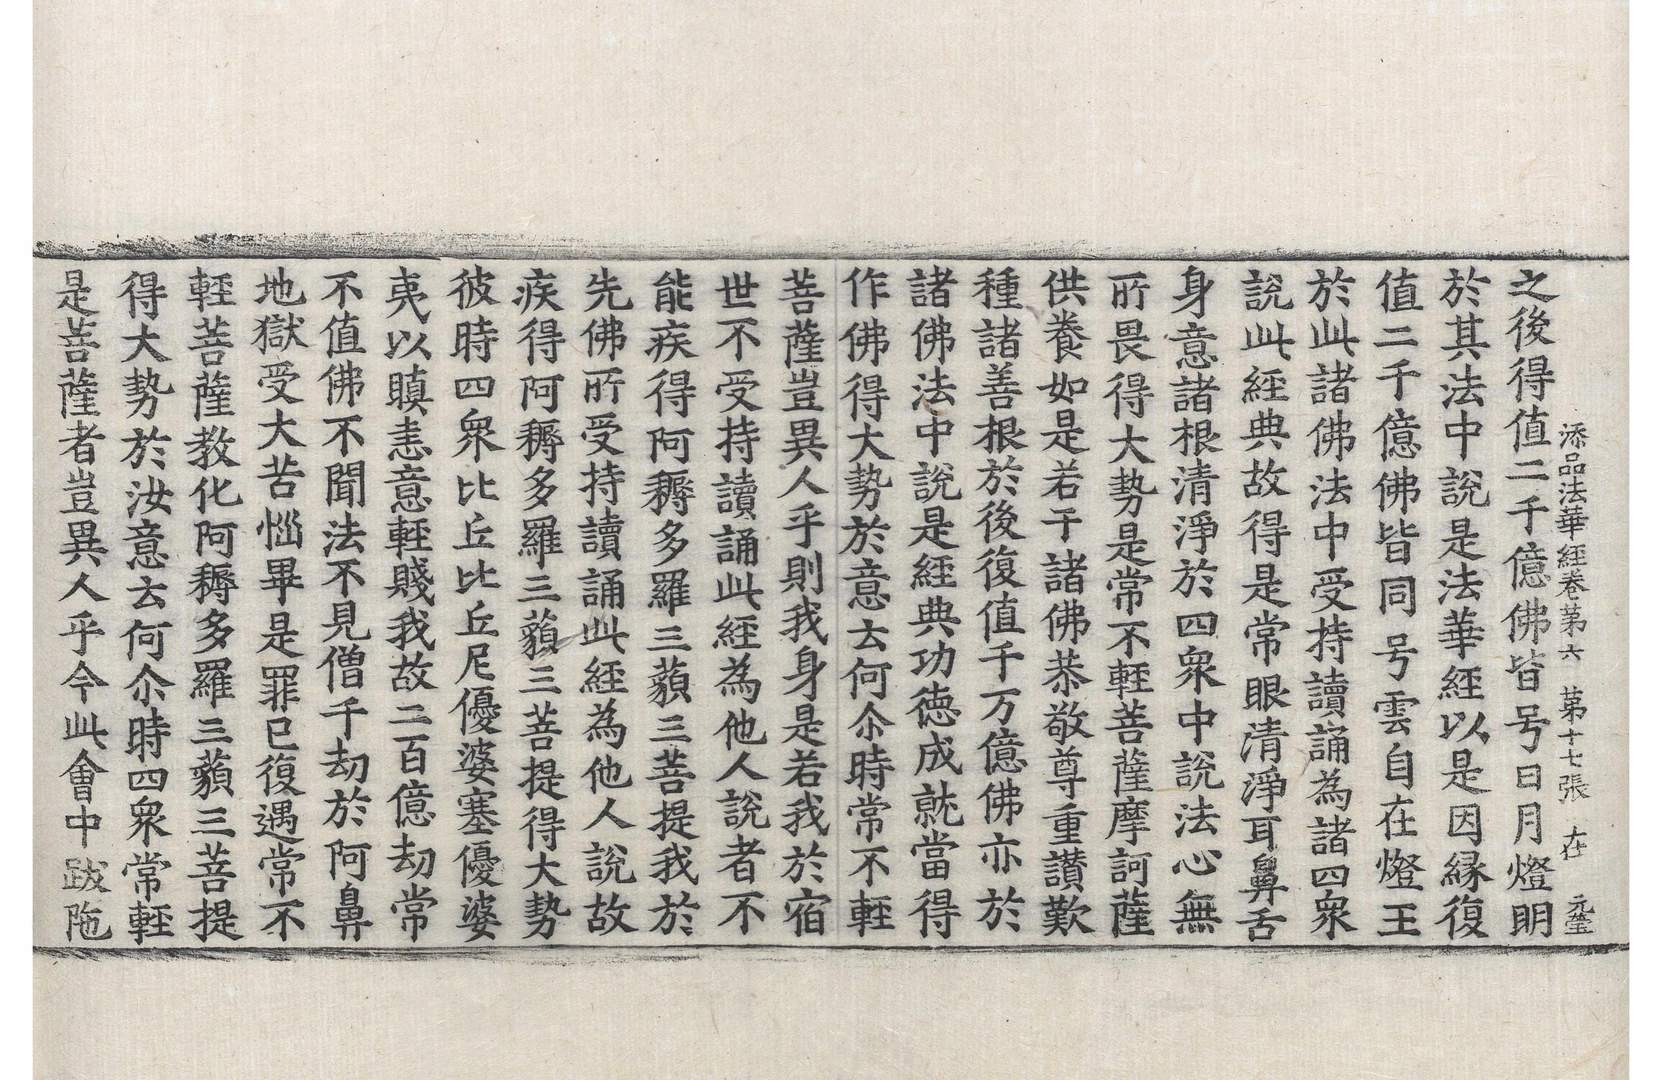 添品法華經卷第六 第十七張 在 元瑩
之後得值二千億佛皆号日月燈明
於其法中說是法華經以是因縁復
值二千億佛皆同号雲自在燈王
於此諸佛法中受持讀誦為諸四衆
說此經典故得是常眼清淨耳鼻舌
身意諸根清淨於四衆中說法心無
所畏得大勢是常不輕菩薩摩訶薩
供養如是若干諸佛恭敬尊重讃歎
種諸善根於後復值千万億佛亦於
諸佛法中說是經典功德成就當得
作佛得大勢於意云何尒時常不輕
菩薩豈異人乎則我身是若我於宿
世不受持讀誦此經為他人說者不
能疾得阿耨多羅三藐三菩提我於
先佛所受持讀誦此經為他人說故
疾得阿耨多羅三藐三菩提得大勢
彼時四衆比丘比丘尼優婆塞優婆
夷以瞋恚意輕賤我故二百億劫常
不值佛不聞法不見僧千劫於阿鼻
地獄受大苦惱畢是罪已復遇常不
輕菩薩教化阿耨多羅三藐三菩提
得大勢於汝意云何尒時四衆常輕
是菩薩者豈異人乎今此會中跋陁